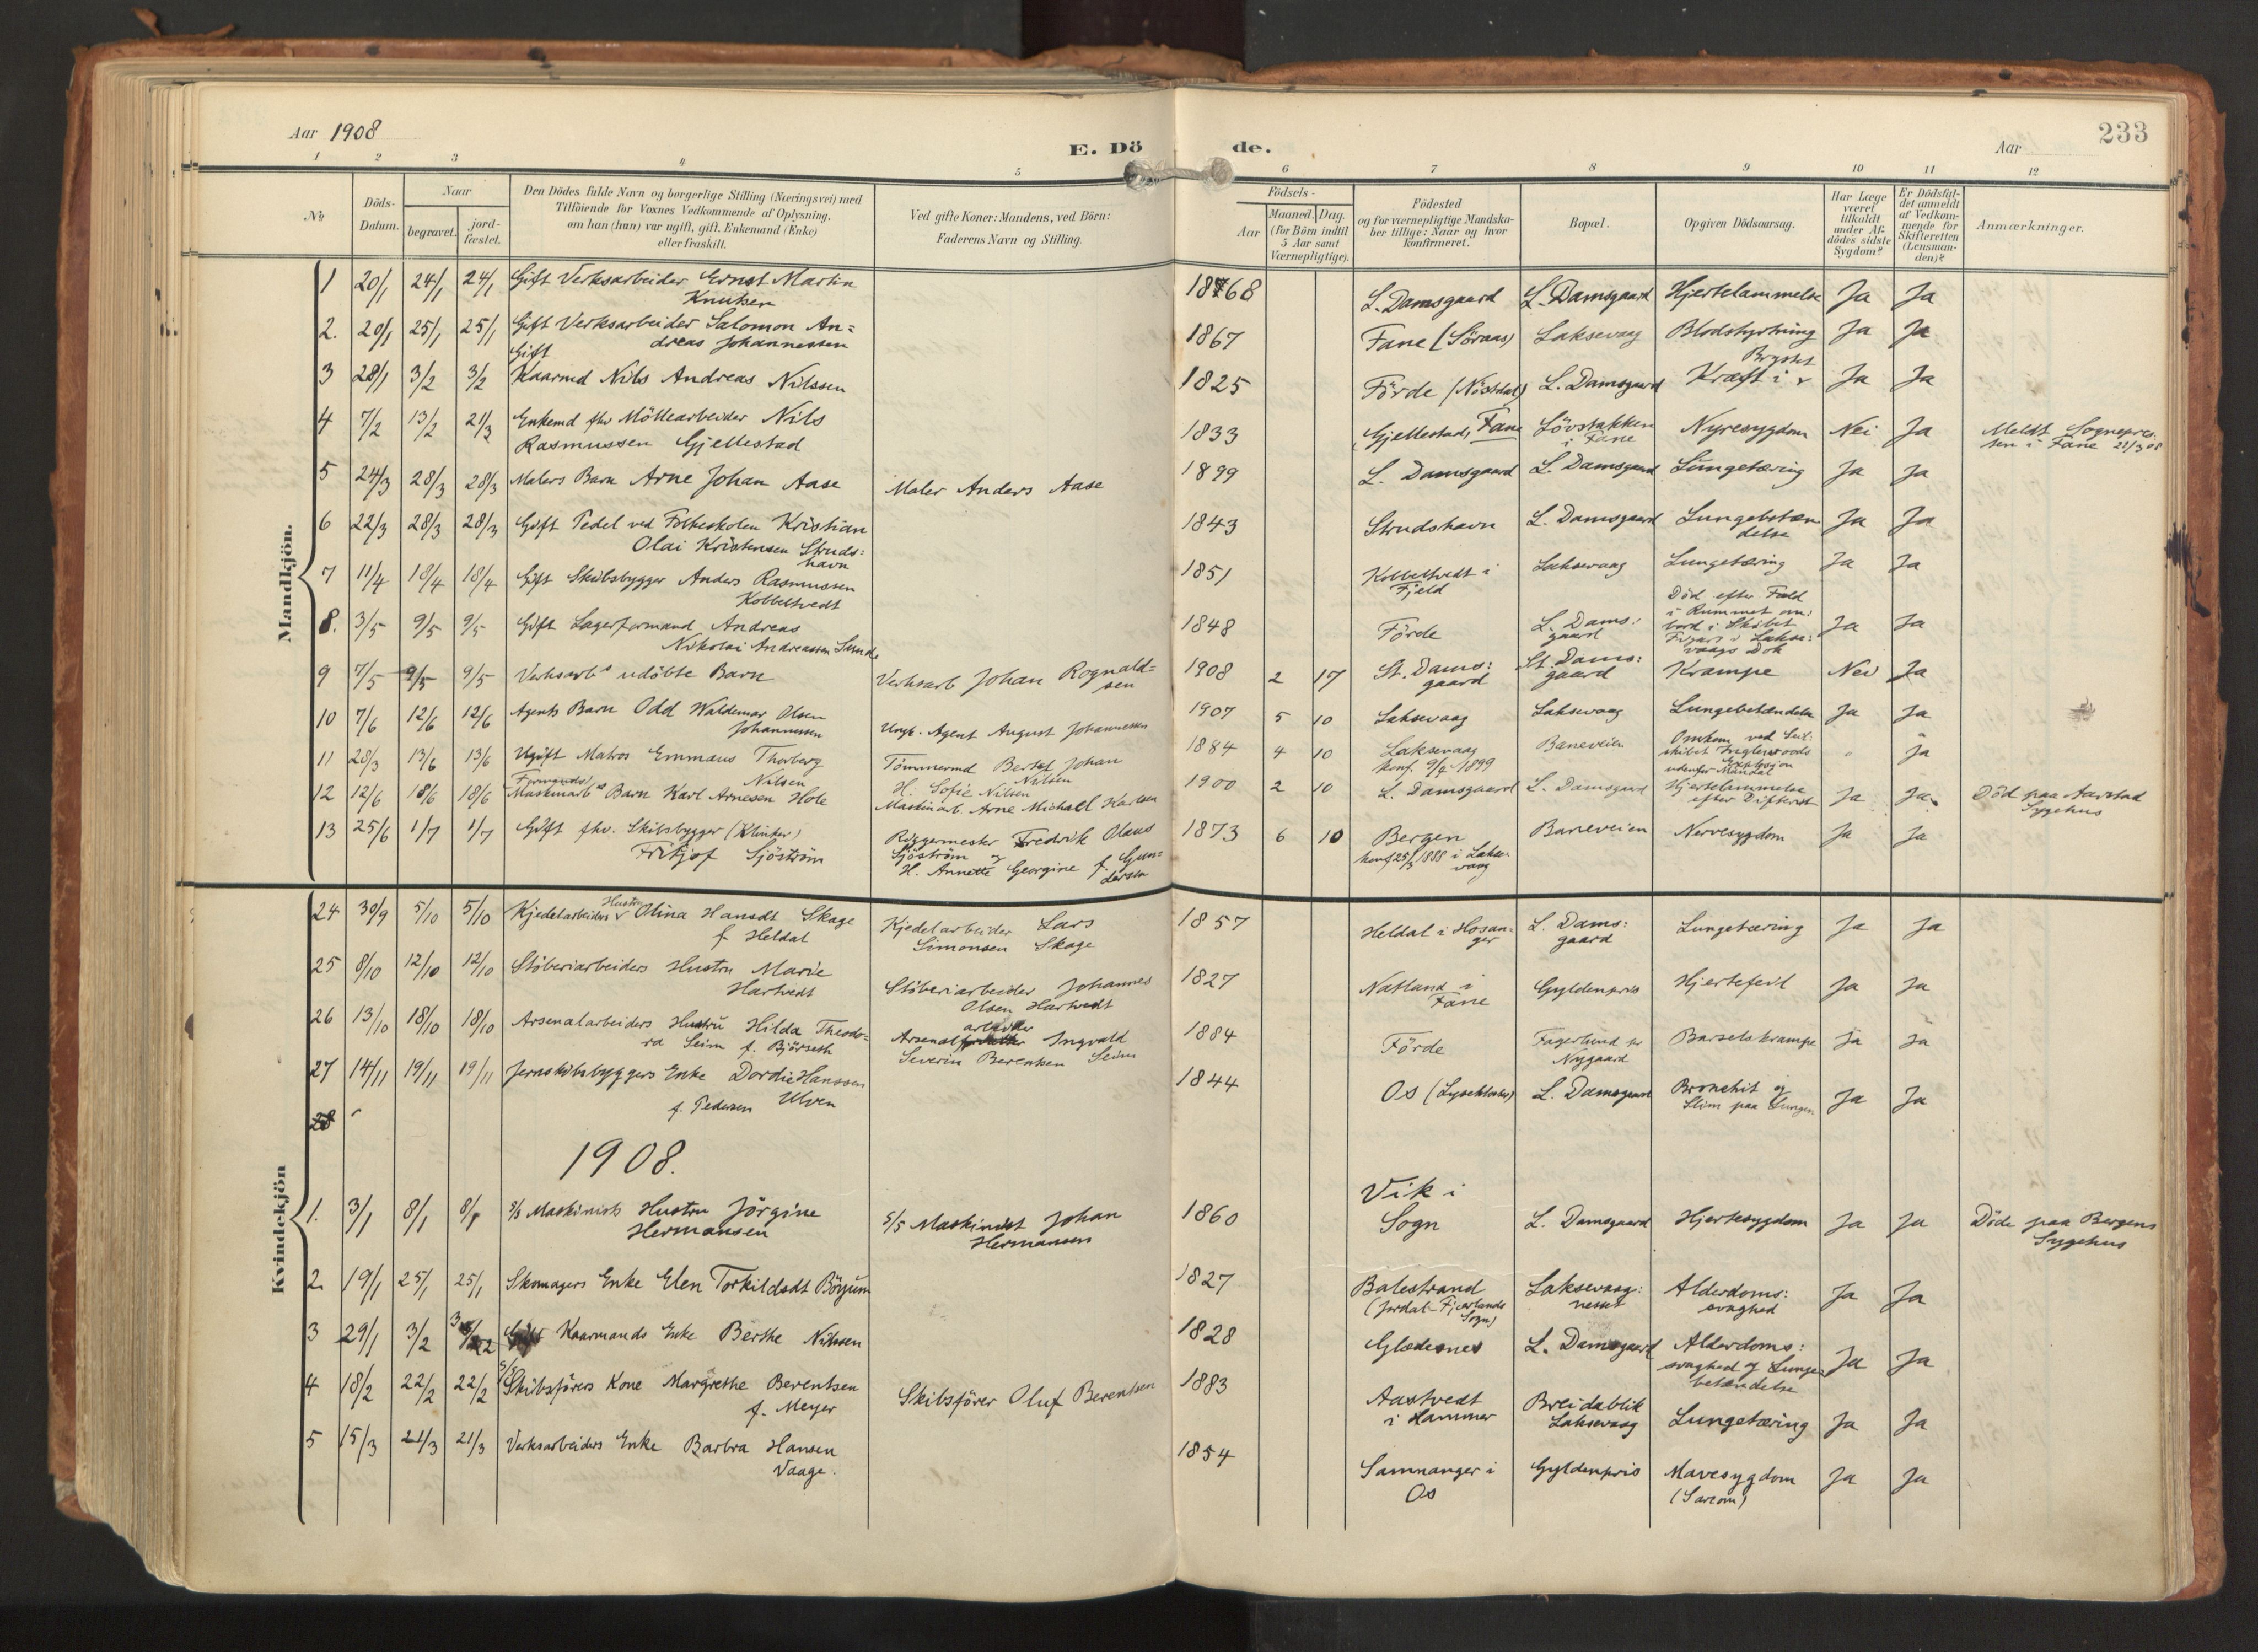 Aar 1908
E. Dö
de.
Aar
233
1 2 3 4 5 6 7 8 9 10 11 12
No
Döds-Datum.
Naar
begravet.
jord-fæstet.
Den Dödes fulde Navn og borgerlige Stilling (Næringsvei) med
Tilföiende for Voxnes Vedkommende af Oplysning.
om han (hun) var ugift, gift, Enkemand (Enke)
eller fraskilt.
Ved gifte Koner: Mandens, ved Börn:
Faderens Navn og Stilling.
Födsels-
Aar
Maaned. Dag.
(for Börn indtil
5 Aar samt
Værnepligtige).
Födested
og for værnepligtige Mandska-
ber tillige: Naar og hvor
konfirmeret.
Bopæl.
Opgiven Dödsaarsag.
Har Læge
været
tilkaldt
under Af-
dödes sidste
Sygdom?
Er Dödsfal-
det anmeldt
af Vedkom-
mende for
Skifteretten
(Lensman-
den)?
Anmærkninger.
Mandkjön.
1 20/1 24/1 24/1 Gift Verksarbeider Ernst Martin
Knutsen
1868 L. Damsgaard L. Damsgaard Hjertelammelse Ja Ja
2. 20/1 25/1 25/1 Gift Verksarbeider Salomon An=
dreas Johannessen
1867 Fane (Söraas) Laksevaag Blodstyrtning Ja Ja
3 28/1 3/2 3/2 Gift
Kaarmd Nils Andreas Nilssen
1825 Förde (Nöstdal) L. Damsgaard Kræft i Brystet Ja Ja
4 7/2 13/2 21/3 Enkemd fhv Möllearbeider Nils
Rasmussen Gjellestad
1833 (Gjellestad) Fane Lövstakken
i Fane
Nyresygdom Nei Ja Meldt Sognepres-
ten i Fane 21/3 08
5 24/3 28/3 28/3 Malers Barn Arne Johan Aase Maler Anders Aase
1899 L. Damsgaard L. Damsgaard Lungetæring Ja Ja
6 22/3 28/3 28/3 Gift Pedel ved Folkeskolen Kristian
Olai Kristensen Struds:
havn
1843 Strudshavn L. Damsgaard Lungebetæn
delse
Ja Ja
7 11/4 18/4 18/4 Gift Skibsbygger Anders Rasmussen
Kobbeltvedt
1851 Kobbeltvedt i
Fjeld
Laksevaag Lungetæring Ja Ja
8. 3/5 9/5 9/5 Gift Lagerformand Andreas
Nikolai Andreassen Sunde
1848 Förde L. Dams:
gaard
Död efter Fald
i Rummet om:
bord i Skibet
i Lakse:
vaags Dok
Ja Ja
9 7/5 9/5 9/5 Verksarbs udöbte Barn Verksarb Johan Rognald=
sen
1908 2 17 St. Dams:
gaard
St. Dams:
gaard
Krampe Nei Ja
10 7/6 12/6 12/6 Agents Barn Odd Waldemar Olsen
Johannessen
Ungk. Agent August Johannessen
1907 5 10 Laksevaag Laksevaag Lungebetændelse Ja Ja
11 28/3 13/6 13/6 Ugift Matros Emmaus Thorberg
Nilsen
Tömmermd Bernt Johan
Nilsen
H. Sofie Nilsen
1884 4 10 Laksevaag
konf. 9/4 1899
Baneveien Omkom ved Seil:
skibet Inglewoods
Explosjon
udenfor Mandal
" Ja
12 12/6 18/6 18/6 Formands
Maskinarbs Barn Karl Arnesen Hole Maskinarb. Arne Michael Karlsen
1900 2 10 L. Damsgaard L. Damsgaard Hjertelammelse
efter Difterit
Ja Ja. Död paa Aarstad
Sygehus
13 25/6 1/7 1/7 Gift fhv. Skibsbygger (Klinker)
Fritjof Sjöström
Riggermester Fredrik Olaus
Sjöström og
H. Annette Georgine f. Gun=
dersen
1873 6 10 Bergen
konf 25/3 1888 i Lakse-
vaag
Baneveien Nervesygdom Ja Ja
Kvindekjön
24 30/9 5/10 5/10 Kjedelarbeiders Hustru Olina Hansdt Skage
f Heldal
Kjedelarbeider Lars
Simonsen Skage
1857 Heldal i Hosan-
ger
L. Dams:
gaard
Lungetæring Ja Ja
25 8/10 12/10 12/10 Stöberiarbeiders Hustru Marie
Hartvedt
Stöberiarbeider Johannes
Olsen Hartvedt
1827 Natland i
Fane
Gyldenpris Hjertefeil Ja Ja
26 13/10 18/10 18/10 Arsenalarbeiders Hustru Hilda Theodo-
ra Seim f. Björseth
Arsenalarbeider Ingvald
Severin Berentsen Seim
1884 Förde Fagerlund pr
Nygaard
Barselskrampe Ja Ja
27 14/11 19/11 19/11 Jernskibsbyggers Enke Dordie Hanssen
f. Pedersen Ulven
1844 Os (Lyseklostер) L. Damsgaard Bronchit og
Slim paa Lungen
Ja Ja
28
1908.
1. 3/1 8/1 8/1 S/S Maskinists Hustru Jörgine
Hermansen
S/S Maskinist Johan
Hermansen
1860 Vik i
Sogn
L. Damsgaard Hjertesygdom Ja Ja Döde paa Bergens
Sygehus
2. 19/1 25/1 25/1 Skomagers Enke Elen Torkildsdt Börjum
1827 Balestrand
(Jordal-Fjærlands
Sogn)
Laksevaag:
nesset
Alderdoms:
svaghed
Ja Ja
3 29/1 3/2 3/2 Kaarmands Enke Berthe Nilssen
1828 Glædesnes L. Damsgaard Alderdoms:
svaghed og Lunge
betændelse
Ja Ja
4 18/2 22/2 22/2 S/S Skibsförers Kone Margrethe Berentsen
f. Meyer
Skibsförer Oluf Berentsen
1883 Aastvedt
i Hammer
Breidablik
Laksevaag
Lungetæring Ja Ja
5 15/3 21/3 21/3 Verksarbeiders Enke Barbra Hansen
Vaage.
1854 Samnanger i
Os
Gyldenpris Mavesygdom
(Sarcom)
Ja Ja